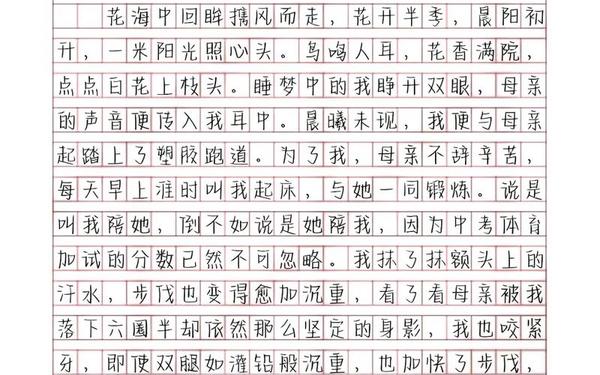 花海中回眸携风而走，花开半季，晨阳初
升，一米阳光照心头。鸟鸣人耳，花香满院，
点点白花上枝头。睡梦中的我睁开双眼，母亲
的声音便传入我耳中。晨曦未现，我便与母亲
起踏上了塑胶跑道。为了我，母亲不辞辛苦，
每天早上准时叫我起床，与她一同锻炼。说是
叫我陪她，倒不如说是她陪我，因为中考体育
加试的分数已然不可忽略。我抹了抹额头上的
汗水，步伐也变得愈加沉重，看了看母亲被我
落下六圈半却依然那么坚定的身影，我也咬紧
牙，即使双腿如灌铅般沉重，也加快了步伐，